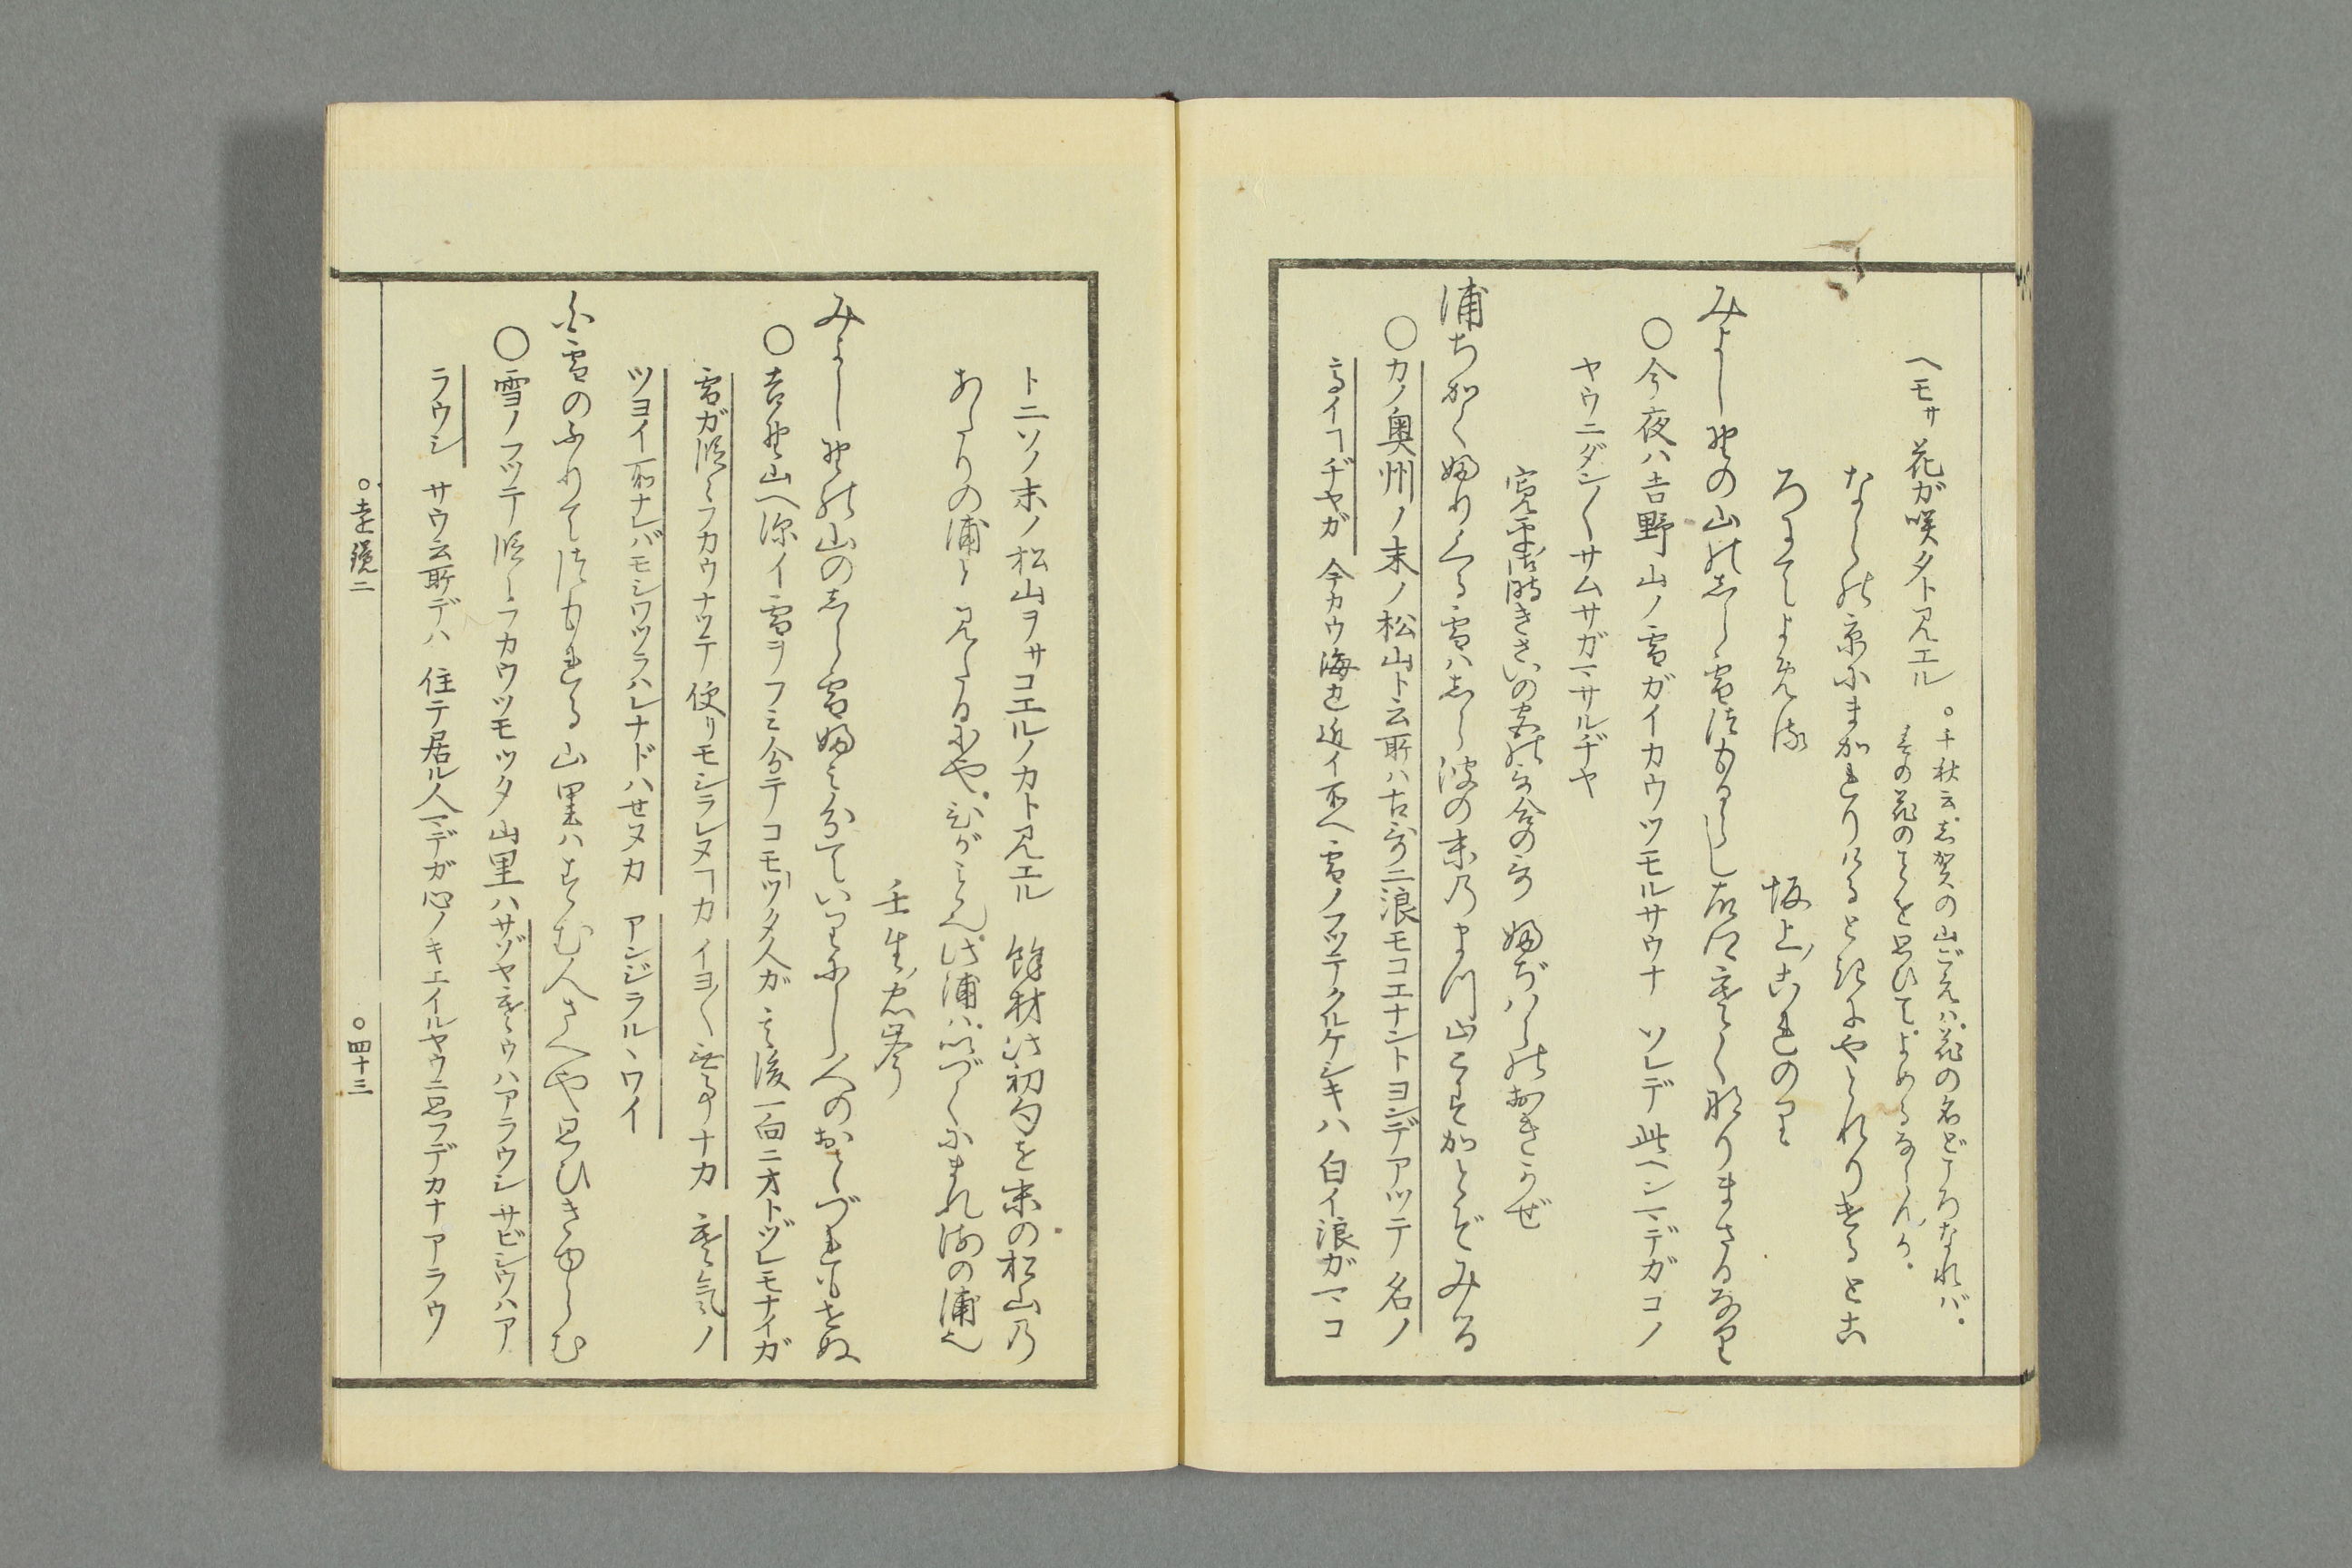 ヘモサ花ガ咲タト見エル
○千秋云。志賀の山ごえハ。花の名どころなれバ。
その花のことを思ひて。よめるならんか。
ならの京にまかれりける時にやどれりけるとこ
ろにてよめる
坂上ノこれのり
みよしのゝ山の志ら雪つもるらし故郷寒く成りまさるなり
○今夜ハ吉野山ノ雪ガイカウツモルサウナ ソレデ此ヘンマデガコノ
ヤウニダン〱サムサガマサルヂヤ
寛平御時きさいの宮の哥合の哥 ふぢハらのおきかぜ
浦ちかくふりくる雪ハ志ら波の末乃まつ山こすかとぞみる
○カノ奥州ノ末ノ松山ト云所ハ古哥ニ浪モコエナントヨンデアツテ名ノ
高イヿヂヤガ 今カウ海ヱ近イ所ヘ雪ノフツテクルケシキハ 白イ浪ガマコ
トニソノ末ノ松山ヲサコエルノカト見エル 餘材此初句を末の松山乃
あたりの浦と見たるにや。ひがこと也。此浦ハ。いづくにまれ海の浦也
壬生ノ忠岑
みよしのゝ山の志ら雪ふみ分ていりにし人のおとづれもせぬ
○吉野山ヘ深イ雪ヲフミ分テコモツタ人ガ 其後一向ニオトヅレモナイガ
雪ガ深ミフカウナツテ 便リモシラレヌヿカ イヨ〱無事ナカ 寒気ノ
ツヨイ所ナレバモシワヅラハレナドハせヌカ アンジラルヽワイ
白雪のふりてつもれる山里ハすむ人さへや思ひきゆらむ
○雪ノフツテ深ミラカウツモツタ山里ハサゾヤ寒ウハアラウシ サビシウハア
ラウシ サウ云所デハ 住テ居ル人マデガ心ノキエイルヤウニ思フデカナアラウ
○遠鏡二
○四十三